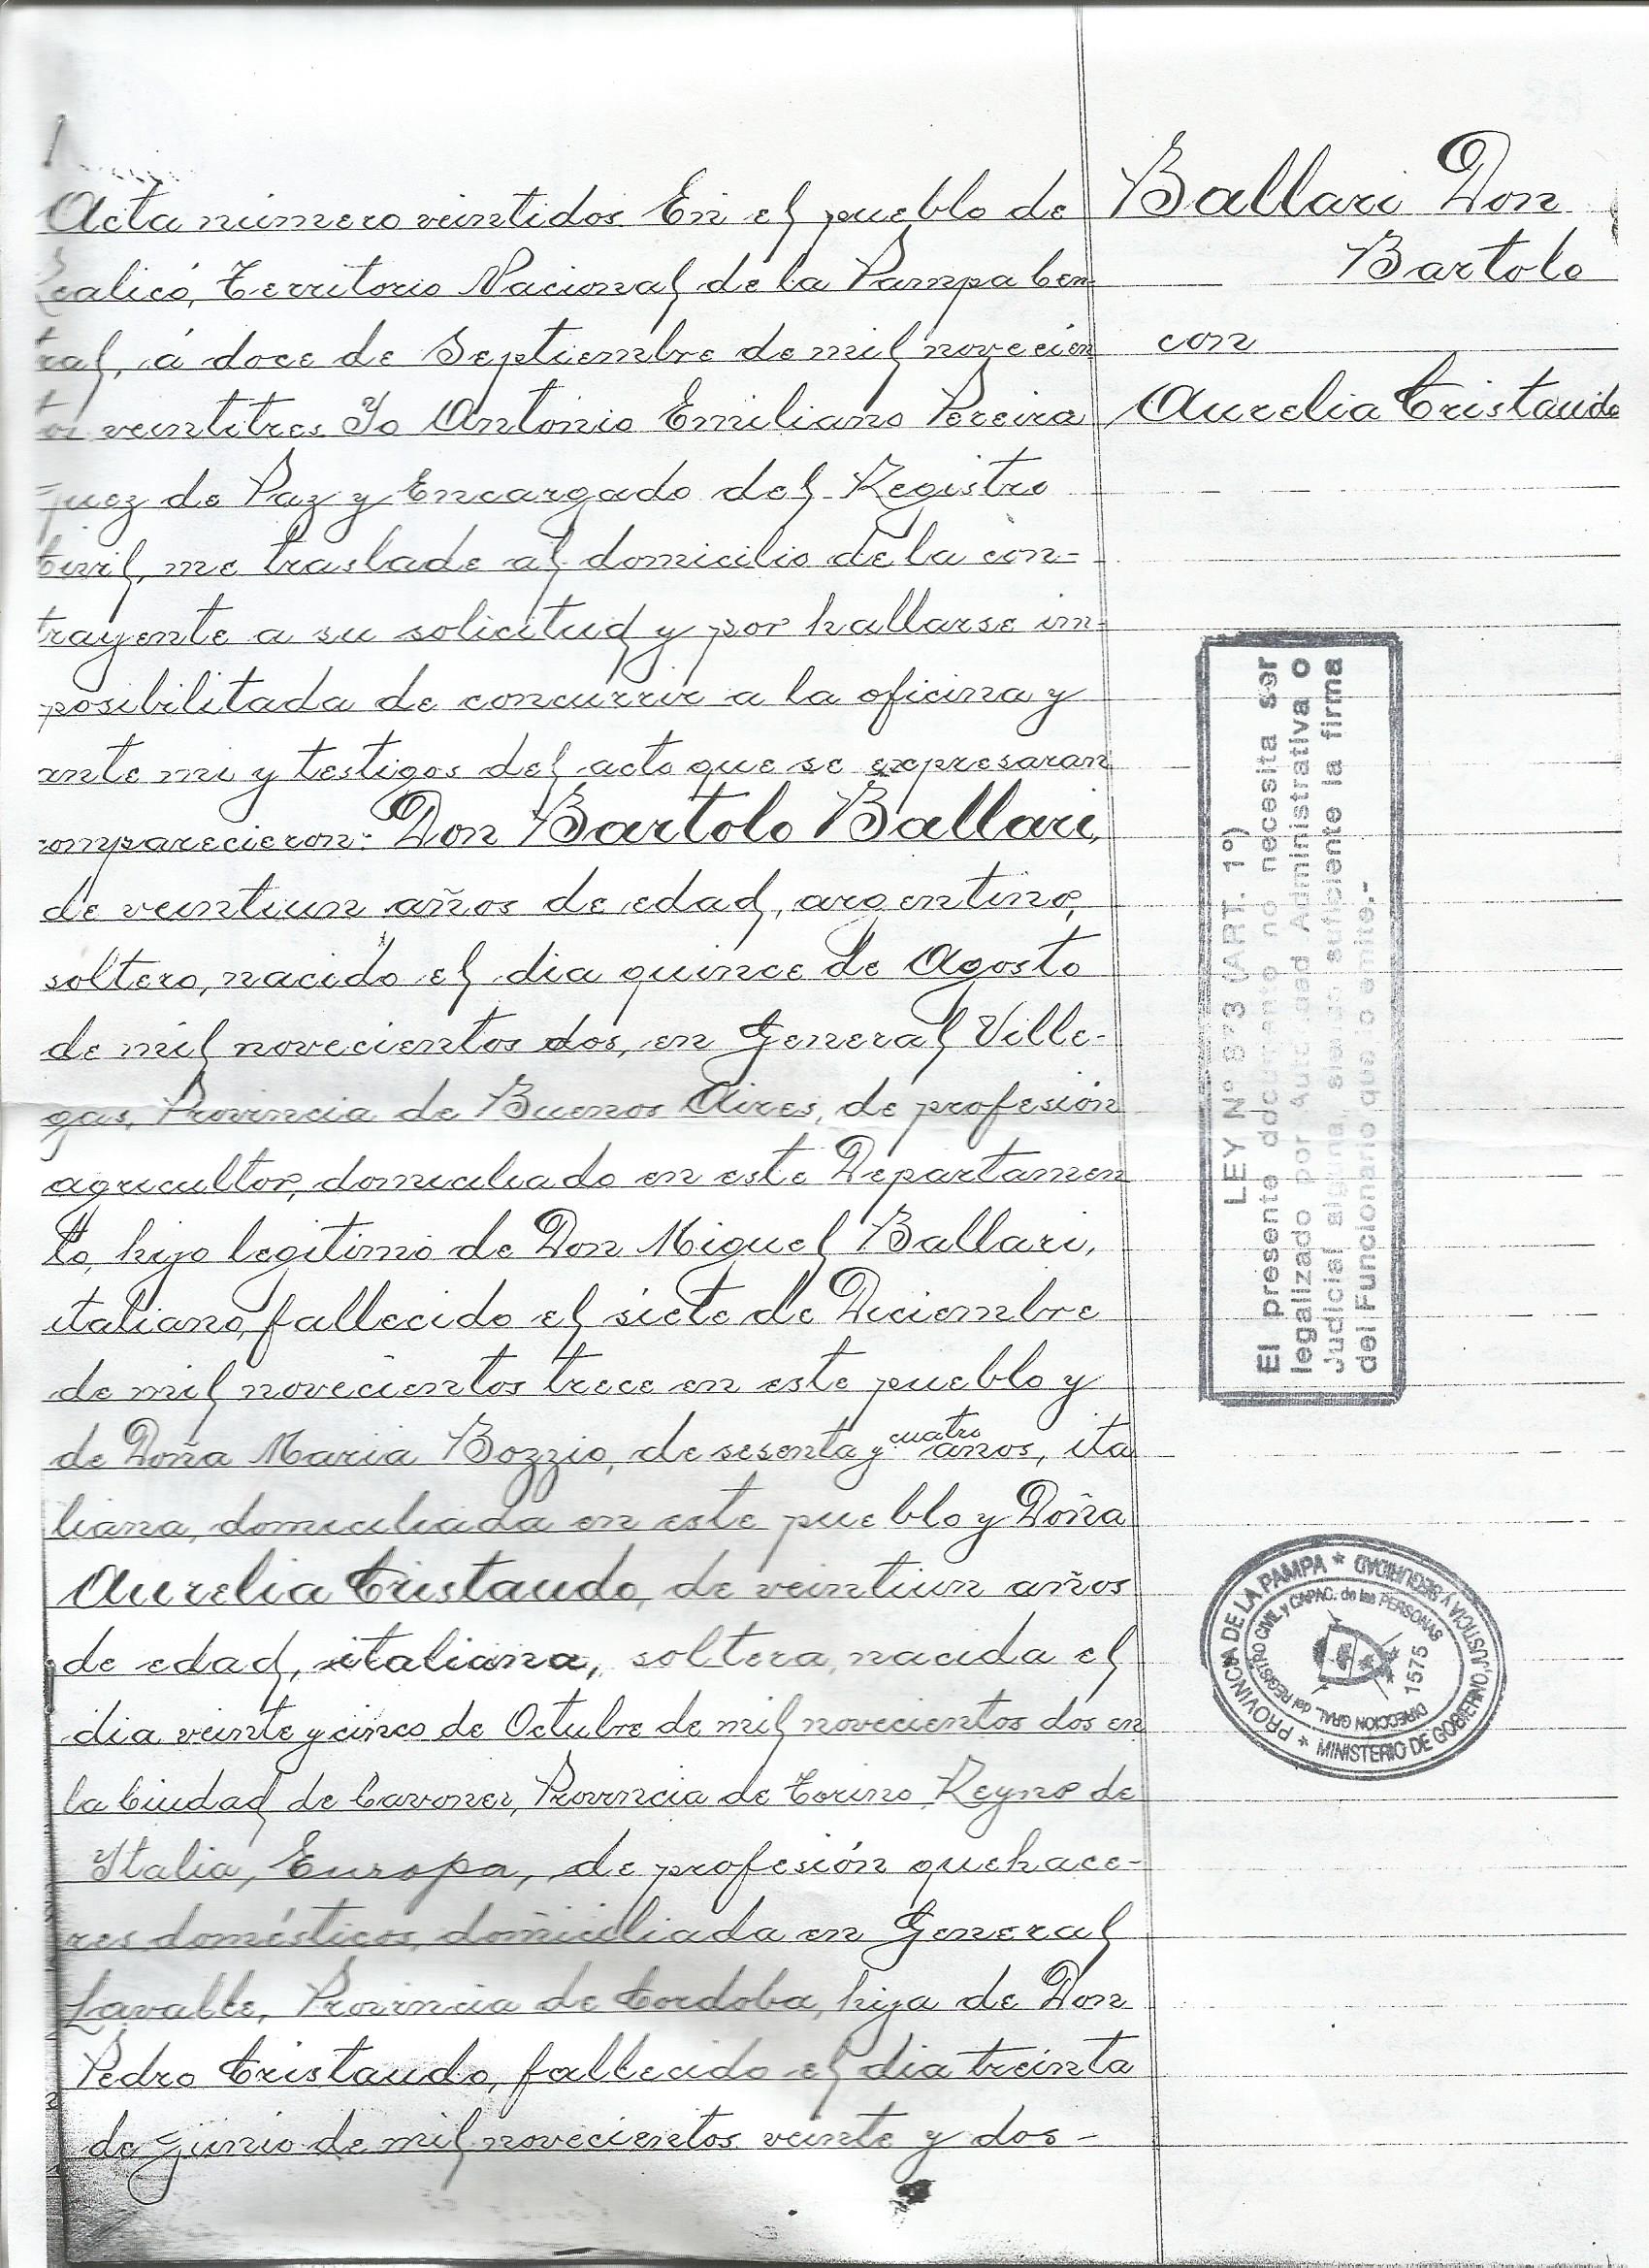 Acta número veintidos. En el pueblo de
Realicó, Territorio Nacional de la Pampa Cen-
tral, á doce de Septiembre de mil novecien
tos veintitres. Yo Antonio Emiliano Pereira
Juez de Paz y Encargado del Registro
Civil, me traslade al domicilio de la con=
trayente a su solicitud y por hallarse im=
posibilitada de concurrir a la oficina y
ante mi y testigos del acto que se expresaran
comparecieron: Don Bartolo Ballari,
de veintiun años de edad, argentino,
soltero, nacido el dia quince de Agosto
de mil novecientos dos, en General Ville-
gas, Provincia de Buenos Aires, de profesión
agricultor, domiciliado en este Departamen
to, hijo legitimo de Don Miguel Ballari,
italiano, fallecido el siete de Diciembre
de mil novecientos trece en este pueblo y
de Doña Maria Bozzio, de sesenta y cuatro años, ita
liana, domiciliada en este pueblo y Doña
Aurelia Cristaudo, de veintiun años
de edad, italiana, soltera, nacida el
dia veinte y cinco de Octubre de mil novecientos dos en
la Ciudad de Cavoner, Provincia de Torino Reyno de
Italia, Europa, de profesión quehace-
res domésticos, domiciliada en General
Lavalle, Provincia de Cordoba, hija de Don
Pedro Cristaudo, fallecido el dia treinta
de Junio de mil novecientos veinte y dos-
Ballari Don
Bartolo
con
Aurelia Cristaudo
LEY Nº 973 (ART. 1º)
El presente documento no necesita ser
legalizado por Autoridad Administrativa o
Judicial alguna siendo suficiente la firma
del Funcionario que lo emite.-
* PROVINCIA DE LA PAMPA * MINISTERIO DE GOBIERNO, JUSTICIA Y SEGURIDAD
DIRECCION GRAL. del REGISTRO CIVIL y CAPAC. de las PERSONAS
1575